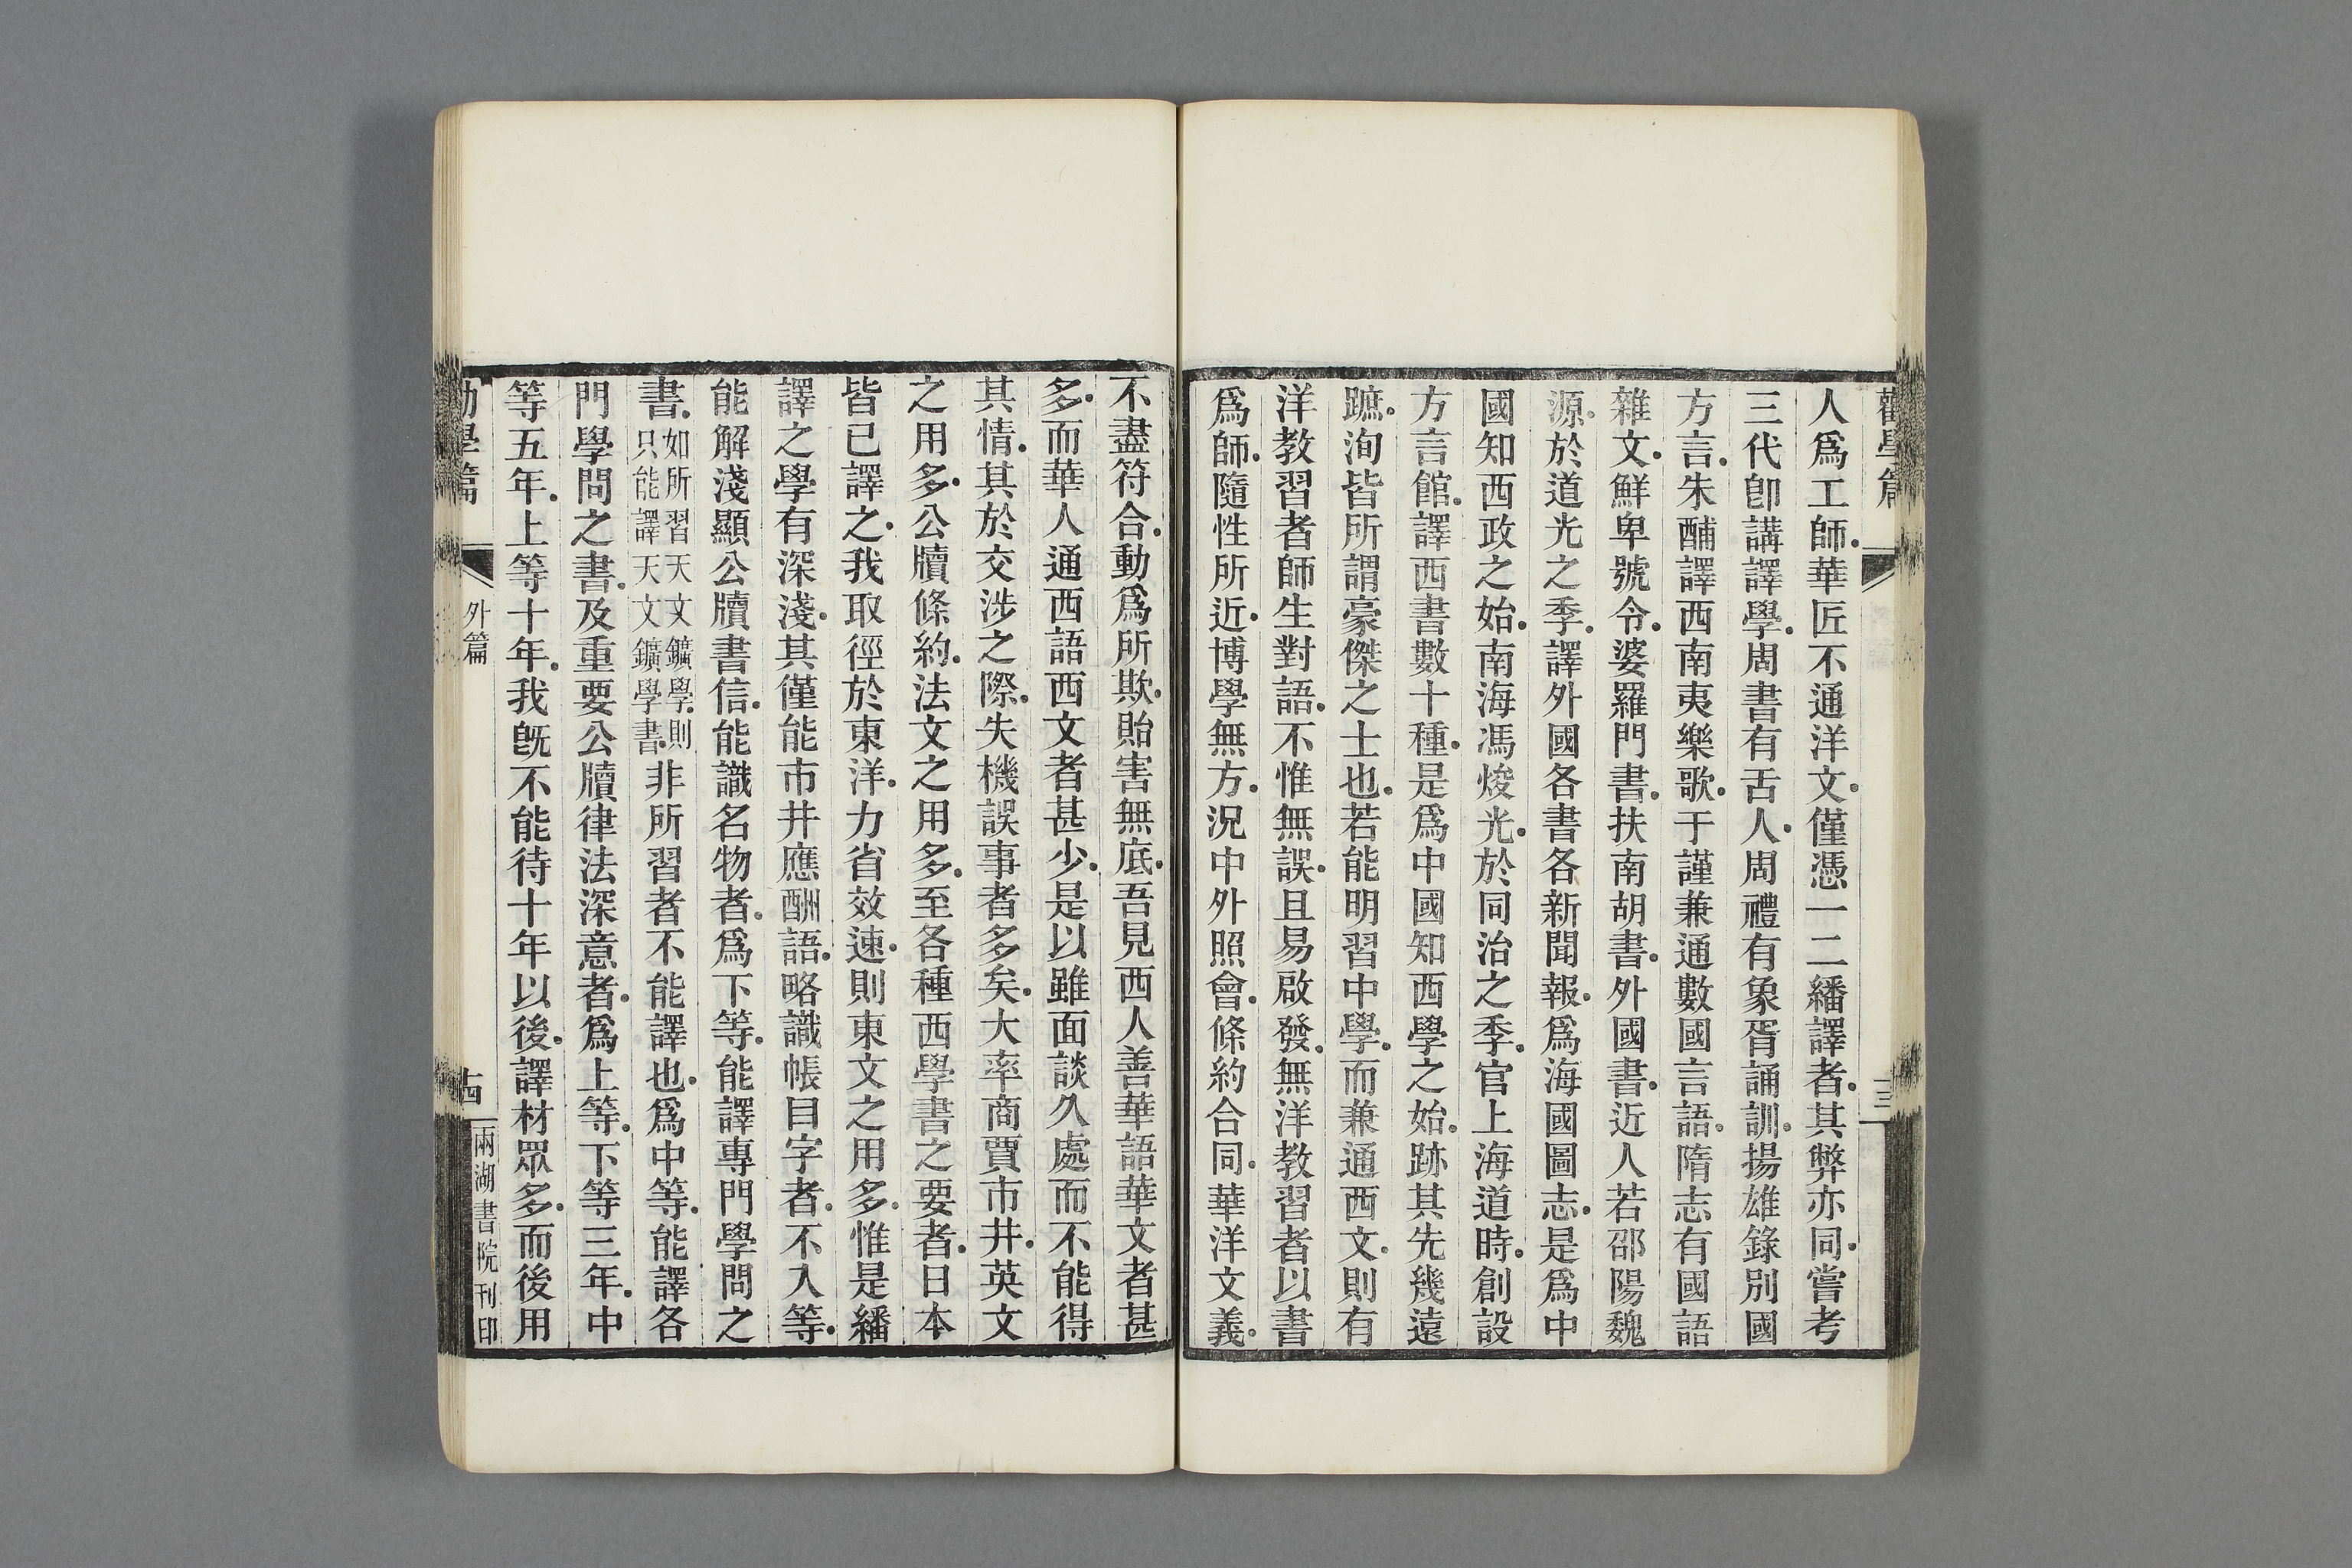 勸學篇
十三
人爲工師.華匠不通洋文.僅憑一二繙譯者.其弊亦同.嘗考
三代卽講譯學.周書有舌人.周禮有象胥誦訓.揚雄錄別國
方言.朱酺譯西南夷樂歌.于謹兼通數國言語.隋志有國語
雜文.鮮卑號令.婆羅門書.扶南胡書.外國書.近人若邵陽魏
源.於道光之季.譯外國各書各新聞報.爲海國圖志.是爲中
國知西政之始.南海馮焌光.於同治之季.官上海道時.創設
方言館.譯西書數十種.是爲中國知西學之始.跡其先幾遠
蹠.洵皆所謂豪傑之士也.若能明習中學.而兼通西文.則有
洋教習者師生對語.不惟無誤.且易啟發.無洋教習者以書
爲師.隨性所近.博學無方.況中外照會.條約合同.華洋文義.
不盡符合.動爲所欺.貽害無底.吾見西人善華語華文者甚
多.而華人通西語西文者甚少.是以雖面談久處而不能得
其情.其於交涉之際.失機誤事者多矣.大率商賈市井.英文
之用多.公牘條約.法文之用多.至各種西學書之要者.日本
皆已譯之.我取徑於東洋.力省效速.則東文之用多.惟是繙
譯之學有深淺.其僅能市井應酬語.略識帳目字者.不入等.
能解淺顯公牘書信.能識名物者.爲下等.能譯專門學問之
書.如所習天文鑛學.則只能譯天文鑛學書.非所習者不能譯也.爲中等.能譯各
門學問之書.及重要公牘律法深意者.爲上等.下等三年.中
等五年.上等十年.我旣不能待十年以後.譯材眾多.而後用
勸學篇
外篇
十四
兩湖書院刊印